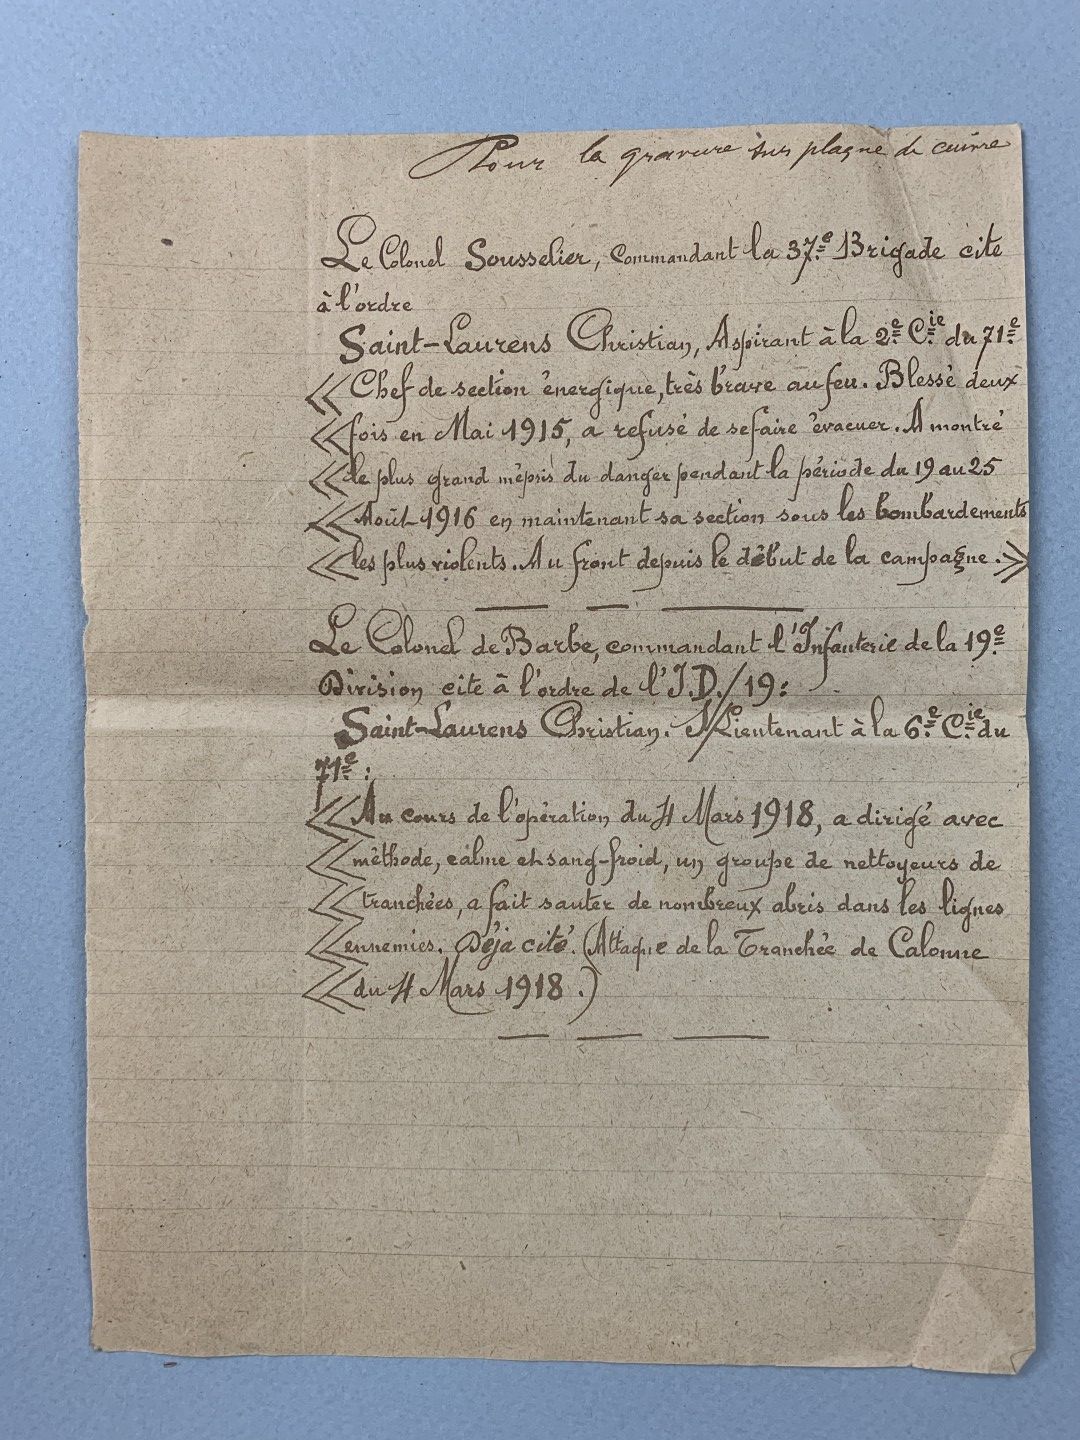 Pour la gravure sur plaque de cuivre
Le Colonel Sousselier, Commandant la 37e Brigade cite
à l'ordre
Saint-Laurens Christian, Aspirant à la 2e Cie du 71e
« Chef de section énergique, très brave au feu. Blessé deux
« fois en Mai 1915, a refusé de se faire évacuer. A montré
« le plus grand mépris du danger pendant la période du 19 au 25
« Août 1916 en maintenant sa section sous les bombardements
« les plus violents. Au front depuis le début de la campagne. »
Le Colonel de Barbe, commandant l'Infanterie de la 19e
Division cite à l'ordre de l'I.D./19:
Saint-Laurens Christian. S/Lieutenant à la 6e Cie du
71e :
« Au cours de l'opération du 4 Mars 1918, a dirigé avec
« méthode, calme et sang-froid, un groupe de nettoyeurs de
« tranchées, a fait sauter de nombreux abris dans les lignes
« ennemies. Déja cité. (Attaque de la Tranchée de Calonne
« du 4 Mars 1918.)